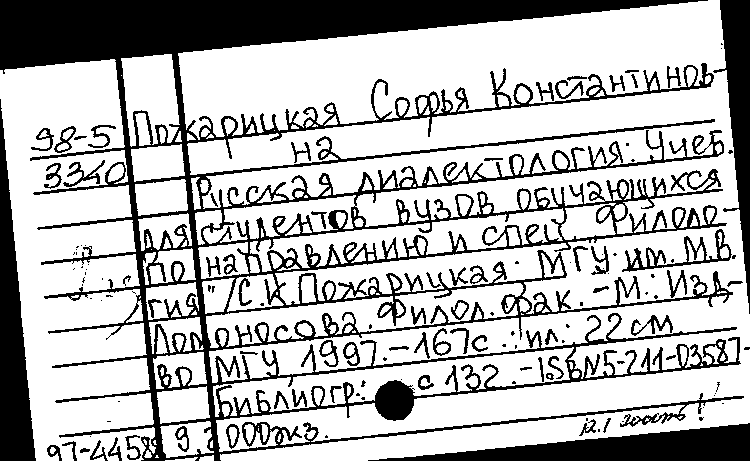 98-5 Пожарицкая Софья Константинов-
3340 на
Русская диалектология: Учеб.
для студентов вузов, обучающихся
по направлению и спец. "Филоло-
гия" /С.К.Пожарицкая; МГУ им. М.В.
Ломоносова. Филол. фак. - М.: Изд-
во МГУ, 1997. - 167с.: ил.; 22 см
Библиогр.: с 132. - ISBN 5-211-03587-
97-4458 9, 000экз.